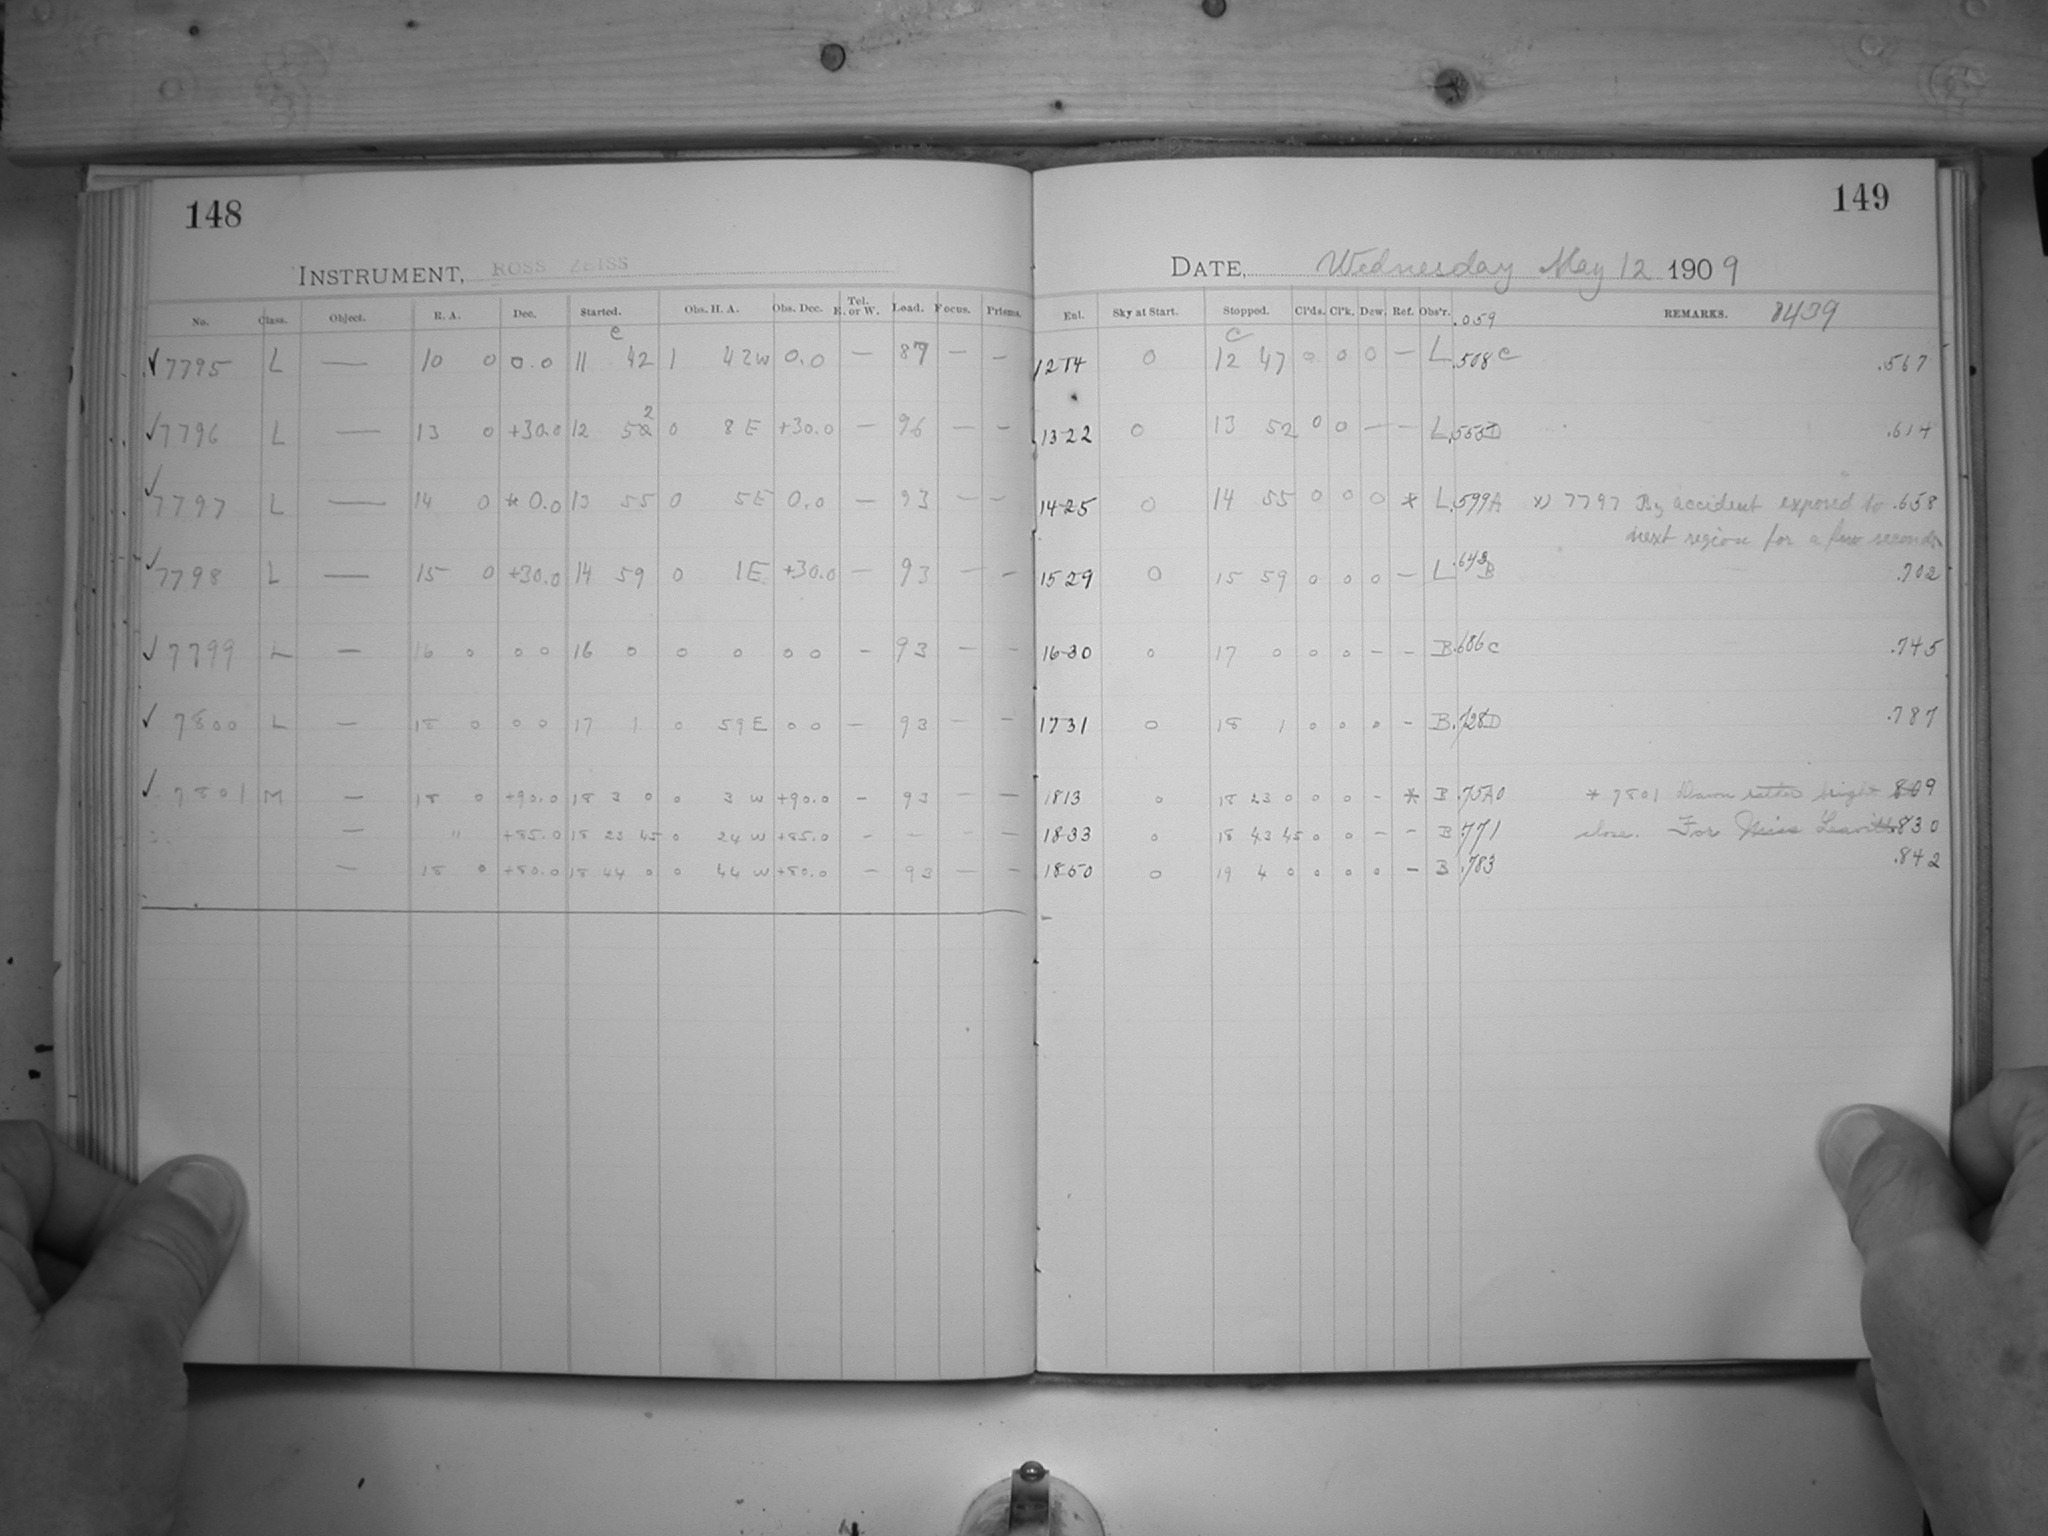 148
149
INSTRUMENT, ROSS ZEISS
DATE, Wednesday May 12 1909
No. Class. Object. R. A. Dec. Started. Obs. H. A. Obs. Dec. Tel. E. or W. Load. Focus. Prisms. Ent. Sky at Start. Stopped. Cl'ds. Cl'k. Dew. Ref. Obs'r. .059 REMARKS. 8439
c c
✓ 7795 L — 10 0 0.0 11 42 1 42 W 0.0 — 87 — — 12 14 0 12 47 0 0 0 — L .508 C .567
✓ 7796 L — 13 0 +30.0 12 52 0 8 E +30.0 — 96 — — 13 22 0 13 52 0 0 — — L .555 D .614
✓ 7797 L — 14 0 * 0.0 13 55 0 5 E 0.0 — 93 — — 14 25 0 14 55 0 0 0 * L .599 A *) 7797 By accident exposed to .658
next region for a few seconds
✓ 7798 L — 15 0 +30.0 14 59 0 1 E +30.0 — 93 — — 15 29 0 15 59 0 0 0 — L .643 B .702
✓ 7799 L — 16 0 0 0 16 0 0 0 0 0 — 93 — — 16 30 0 17 0 0 0 — — B .686 C .745
✓ 7800 L — 18 0 0 0 17 1 0 59 E 0 0 — 93 — — 17 31 0 18 1 0 0 0 — B .728 D .787
✓ 7801 M — 18 0 +90.0 18 3 0 0 3 W +90.0 — 93 — — 18 13 0 18 23 0 0 0 0 — * B .75A0 * 7801 Dawn rather bright 809
— " +85.0 18 23 45 0 24 W +85.0 — — — — 18 33 0 18 43 45 0 0 — — B .771 close. For Miss Leavitt .830
— 18 0 +80.0 18 44 0 0 44 W +80.0 — 93 — — 18 50 0 19 4 0 0 0 0 — B .783 .842